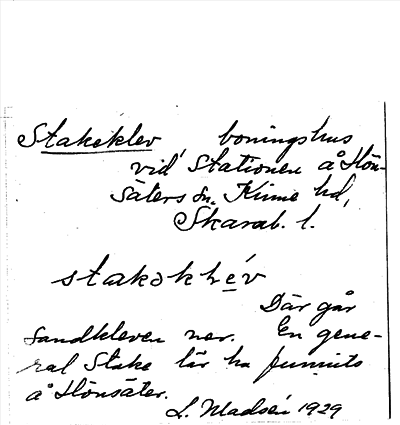 Stakeklev boningshus
vid Stationen å Hön-
säters sn. Kinne hd,
Skarab. l.
stakəklev
Där går
sandkleven ner. En gene-
ral Stake lär ha funnits
å Hönsäter.
L. Madsén 1929